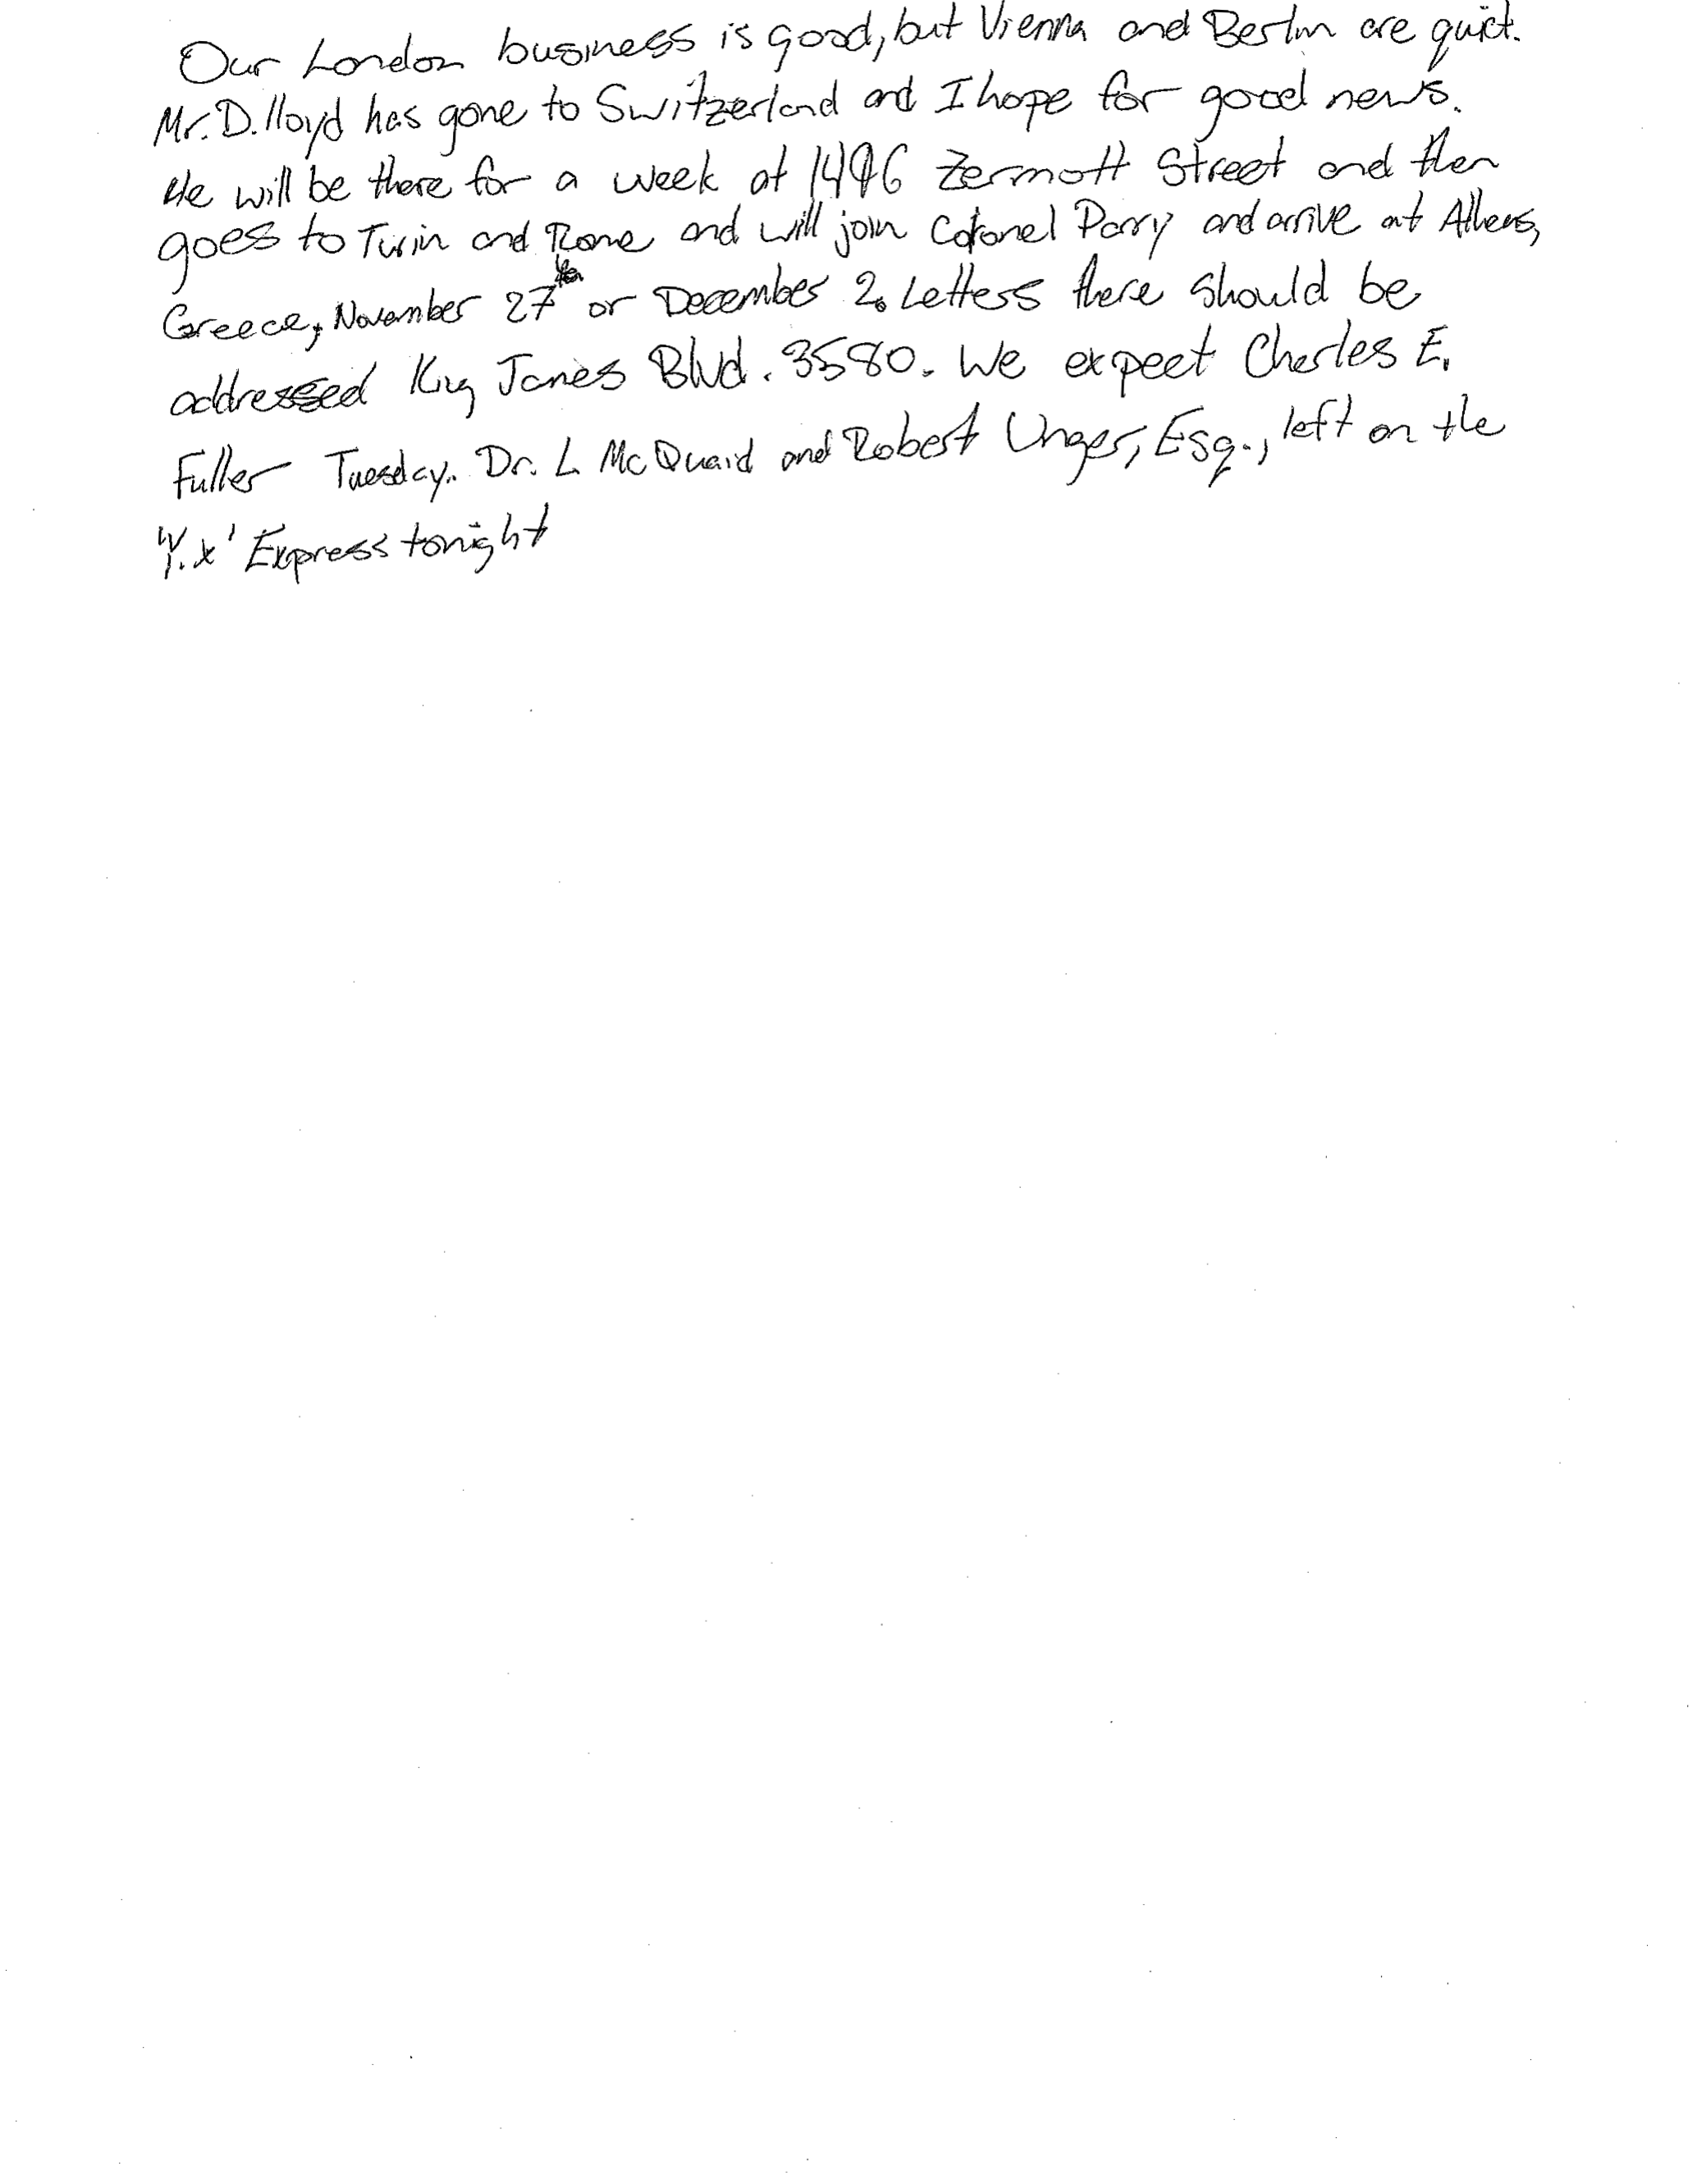 Our London business is good, but Vienna and Berlin are quiet.
Mr. D. lloyd has gone to Switzerland and I hope for good news.
He will be there for a week at 1496 Zermott Street and then
goes to Turin and Rome and will join Colonel Parry and arrive at Athens,
Greece, November 27th or December 2. Letters there should be
addressed King James Blvd. 3580. We expect Charles E.
Fuller Tuesday. Dr. L McQuaid and Robert Unger, Esq., left on the
'Y.X' Express tonight